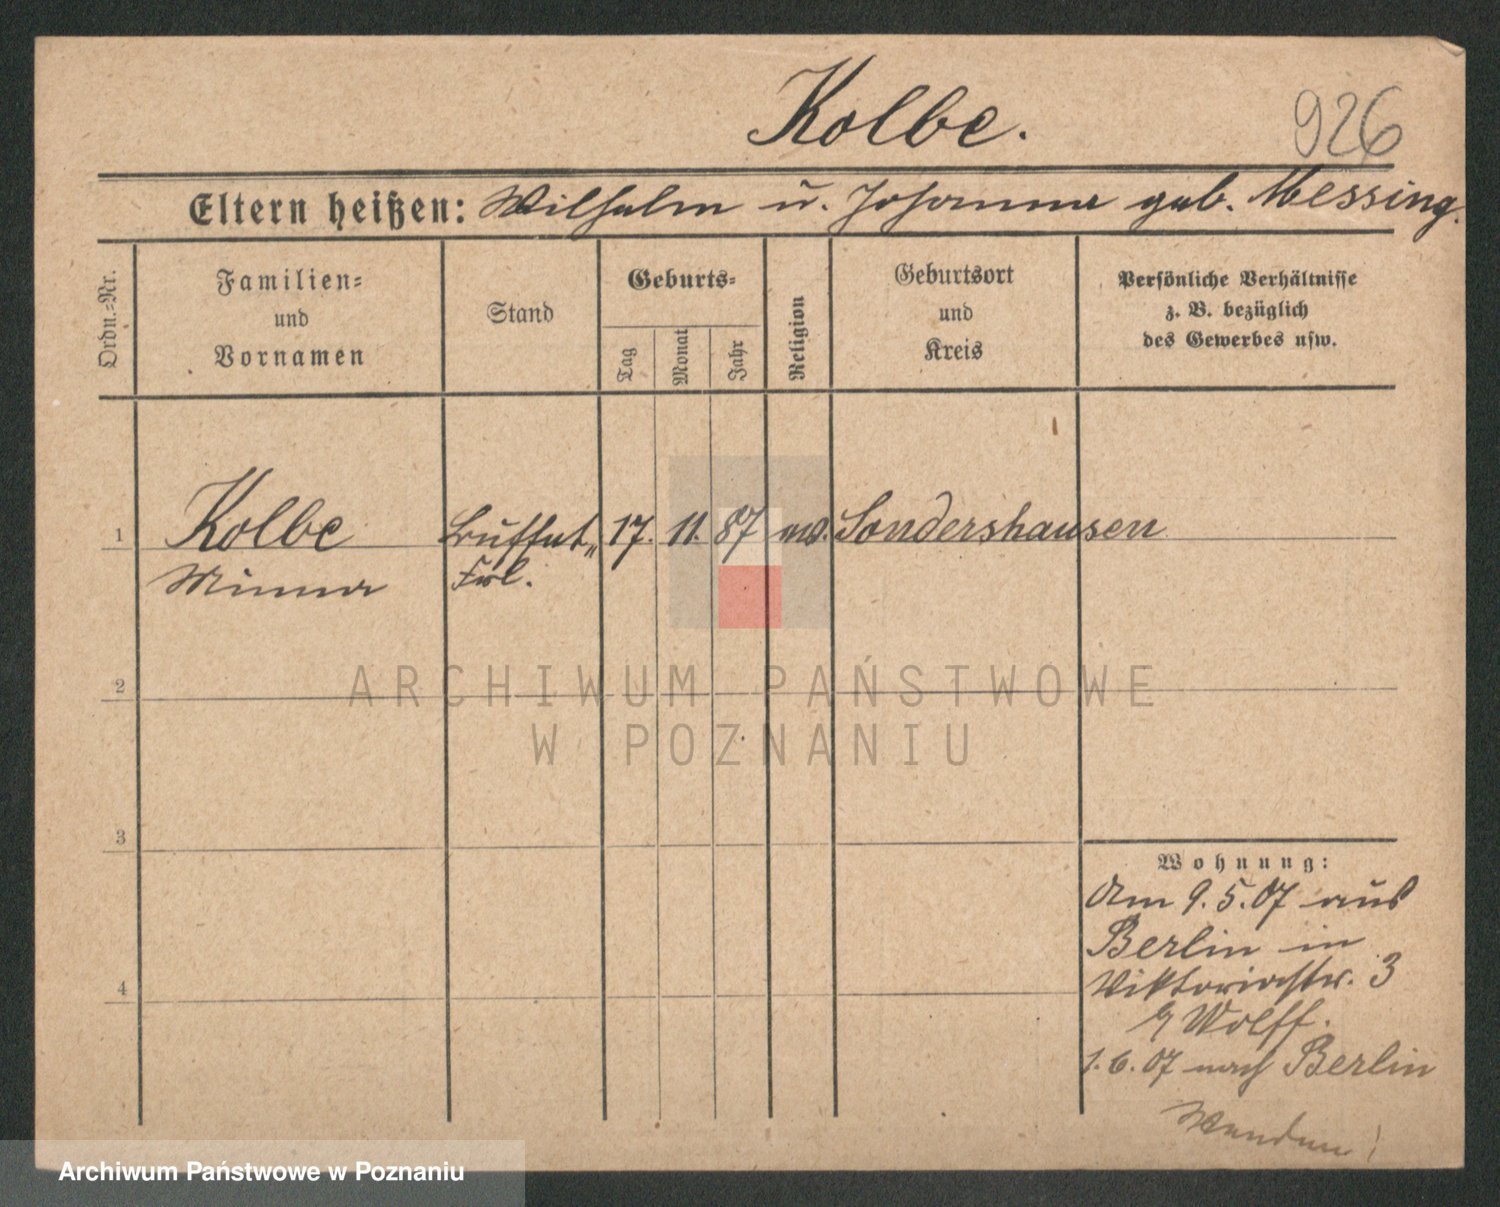 Kolbe.
926
Eltern heißen: Wilhelm u. Johanna geb. Messing.
Ordn.=Nr.
Familien=
und
Vornamen
Stand
Geburts=
Tag
Monat
Jahr
Religion
Geburtsort
und
Kreis
Persönliche Verhältnisse
z. B. bezüglich
des Gewerbes usw.
1 Kolbe Buffet= 17. 11. 87 ev. Sondershausen
Minna Frl.
2
ARCHIWUM PAŃSTWOWE
W POZNANIU
3
Wohnung:
Am 9. 5. 07 aus
Berlin in
Viktoriastr. 3
b/ Wolff.
4
1. 6. 07 nach Berlin
Wenden!
Archiwum Państwowe w Poznaniu